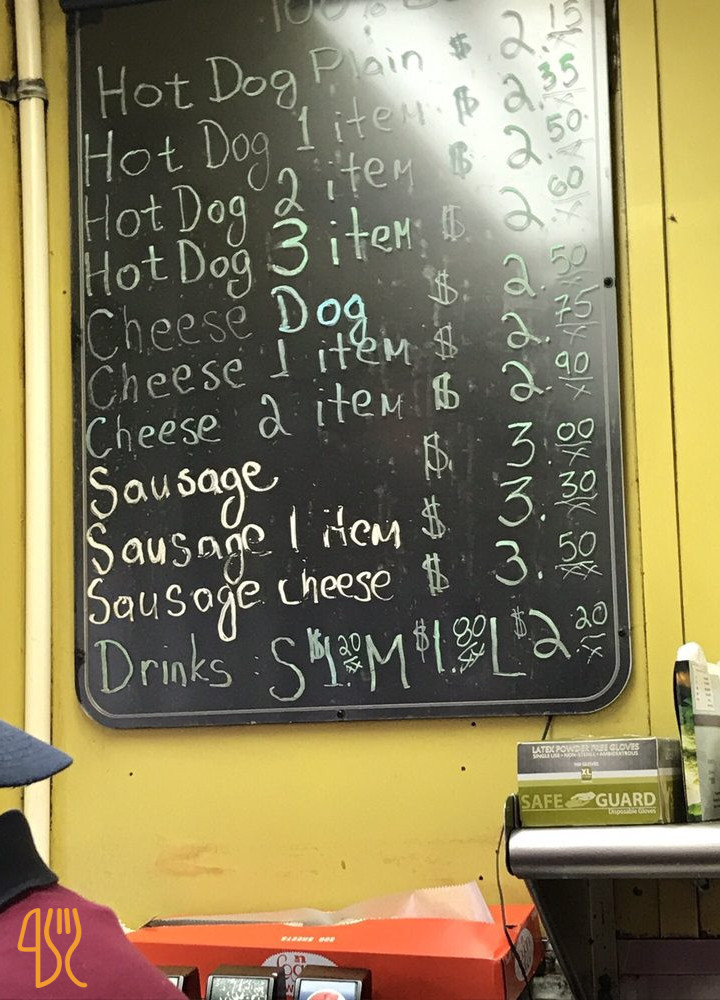 100%
Hot Dog Plain $ 2.15
Hot Dog 1 item $ 2.35
Hot Dog 2 item $ 2.50
Hot Dog 3 item $ 2.60
Cheese Dog $ 2.50
Cheese 1 item $ 2.75
Cheese 2 item $ 2.90
Sausage $ 3.00
Sausage 1 item $ 3.30
Sausage cheese $ 3.50
Drinks: S $1.20 M $1.80 L $2.20
LATEX POWDER FREE GLOVES
SINGLE USE • NON-STERILE • AMBIDEXTROUS
XL
SAFE GUARD
Disposable Gloves